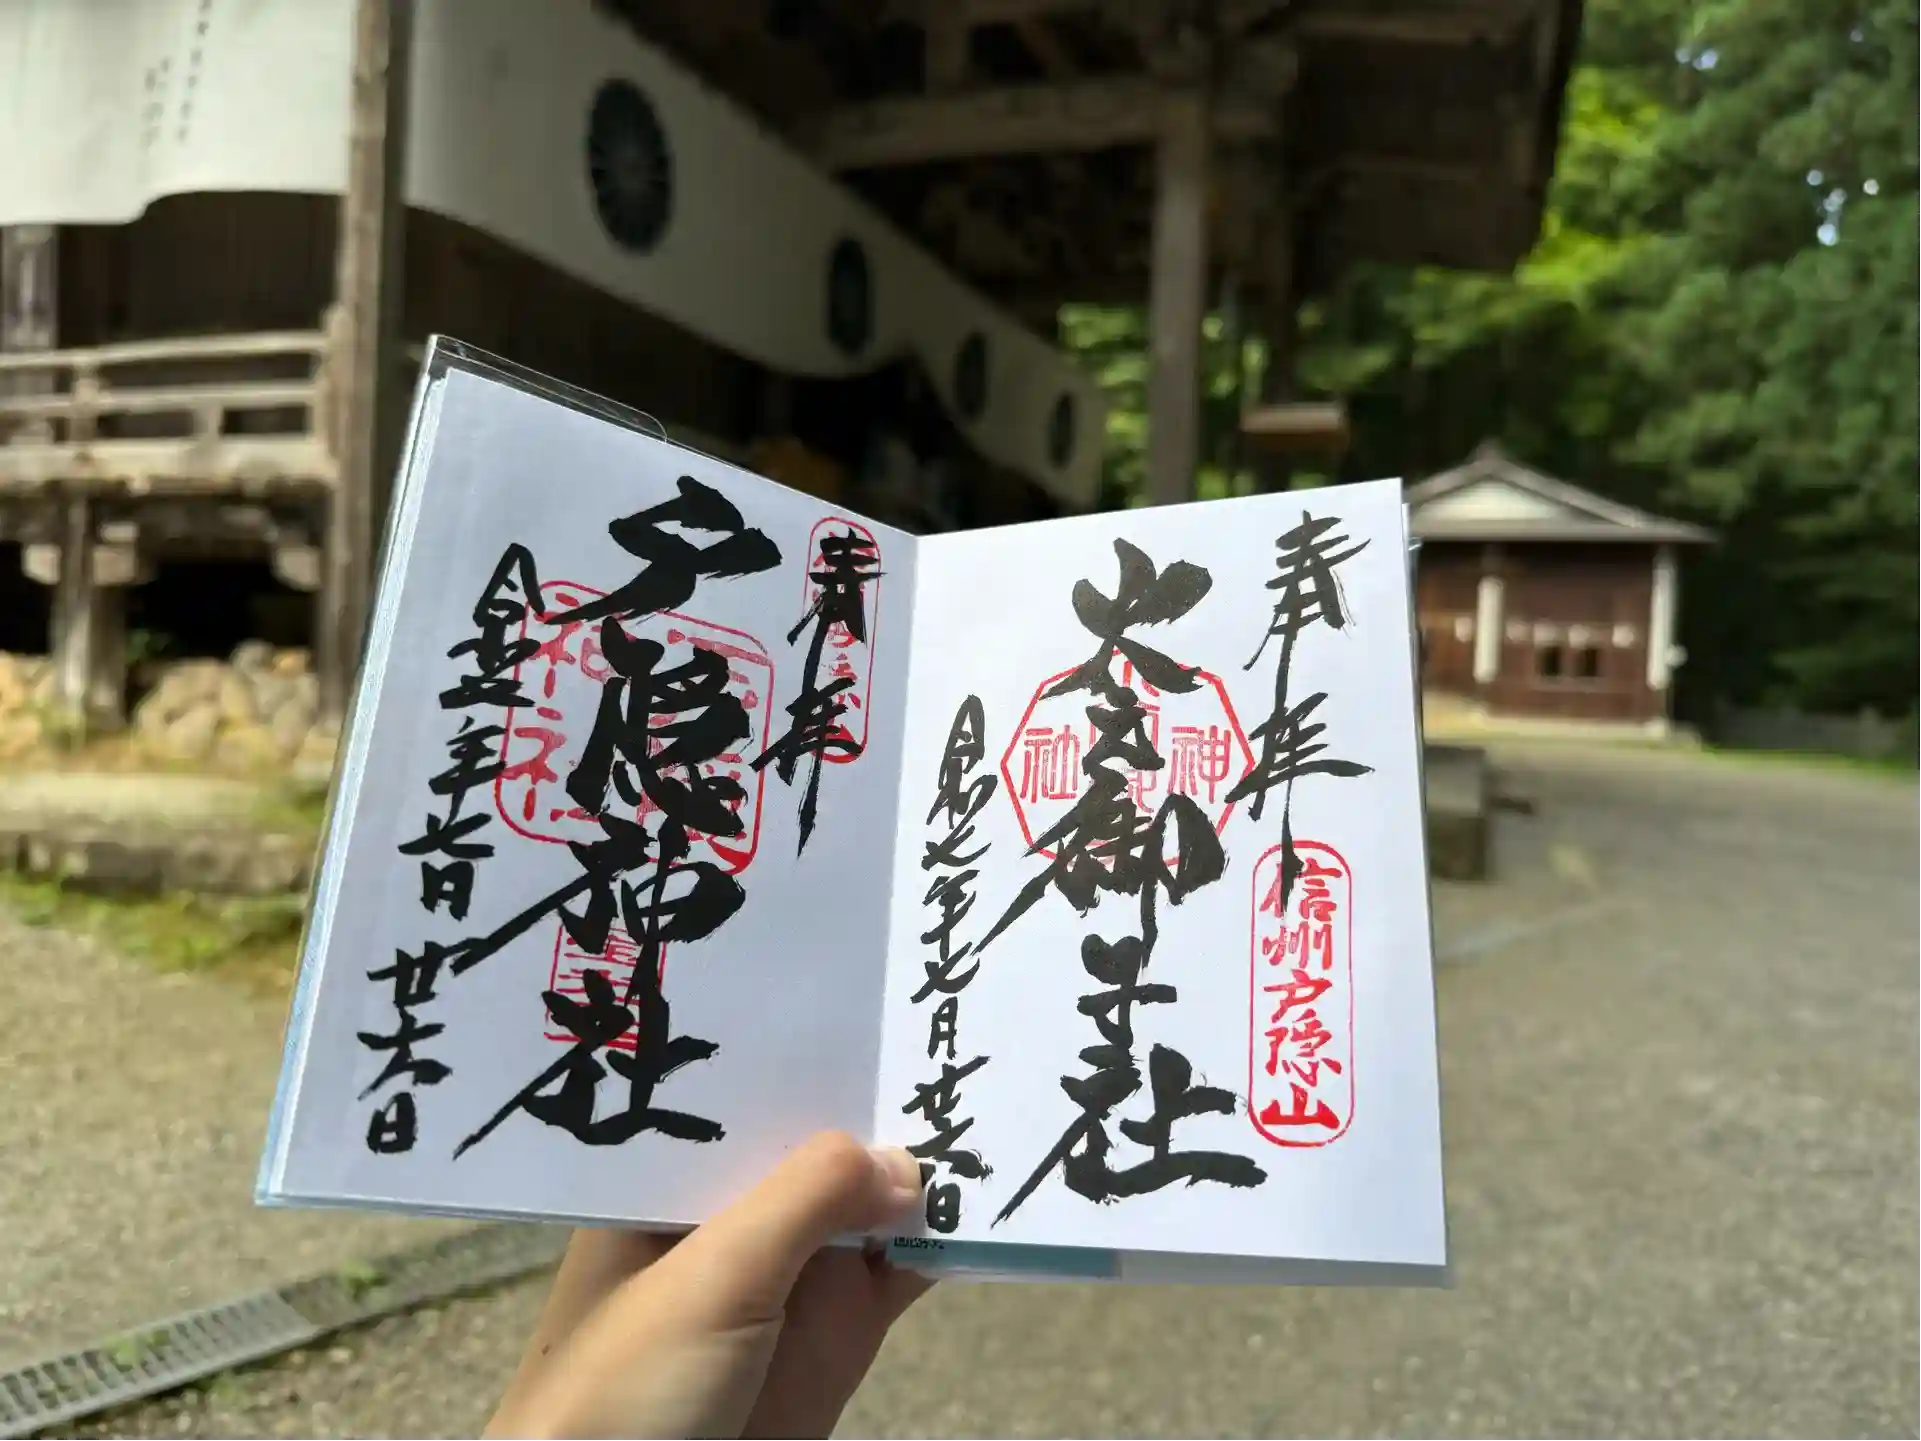 奉拝
信州戸隠山
火之御子社
令和七年七月廿六日
奉拝
戸隠神社
令和七年七月廿六日